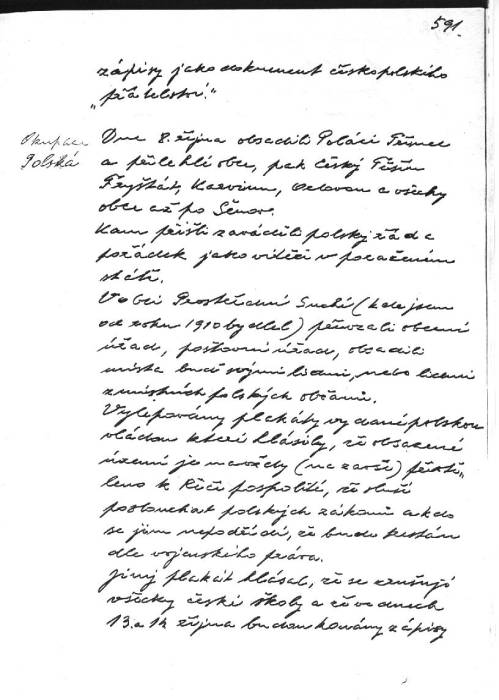 591.
zápisy jako dokument českopolského
„přátelství."
Okupace
Polská
Dne 8. října obsadili Poláci Třinec
a přilehlé obce, pak Český Těšín
Fryštát, Karvinnu, Orlovou a všechy
obce až po Šenov.
Kam přišli zaváděli polský řád a
pořádek jako vítězi v poraženém
státě.
V obci Prostřední Suché (kde jsem
od roku 1910 bydlel) převzali obecní
úřad, poštovní úřad, obsadili
místa buď svými lidmi, nebo lidmi
z místních polských občanů.
Vylepovány plakáty vydané polskou
vládou které hlásily, že obsazené
území je navždy (na zawše) přivtě„
leno k Řeči pospolité, že sluší
poslouchat polských zákonů a kdo
se jim nepodřídí, že bude trestán
dle vojenského práva.
Jiný plakát hlásal, že se zrušují
všecky české školy a že ve dnech
13. a 14. října budou konány zápisy